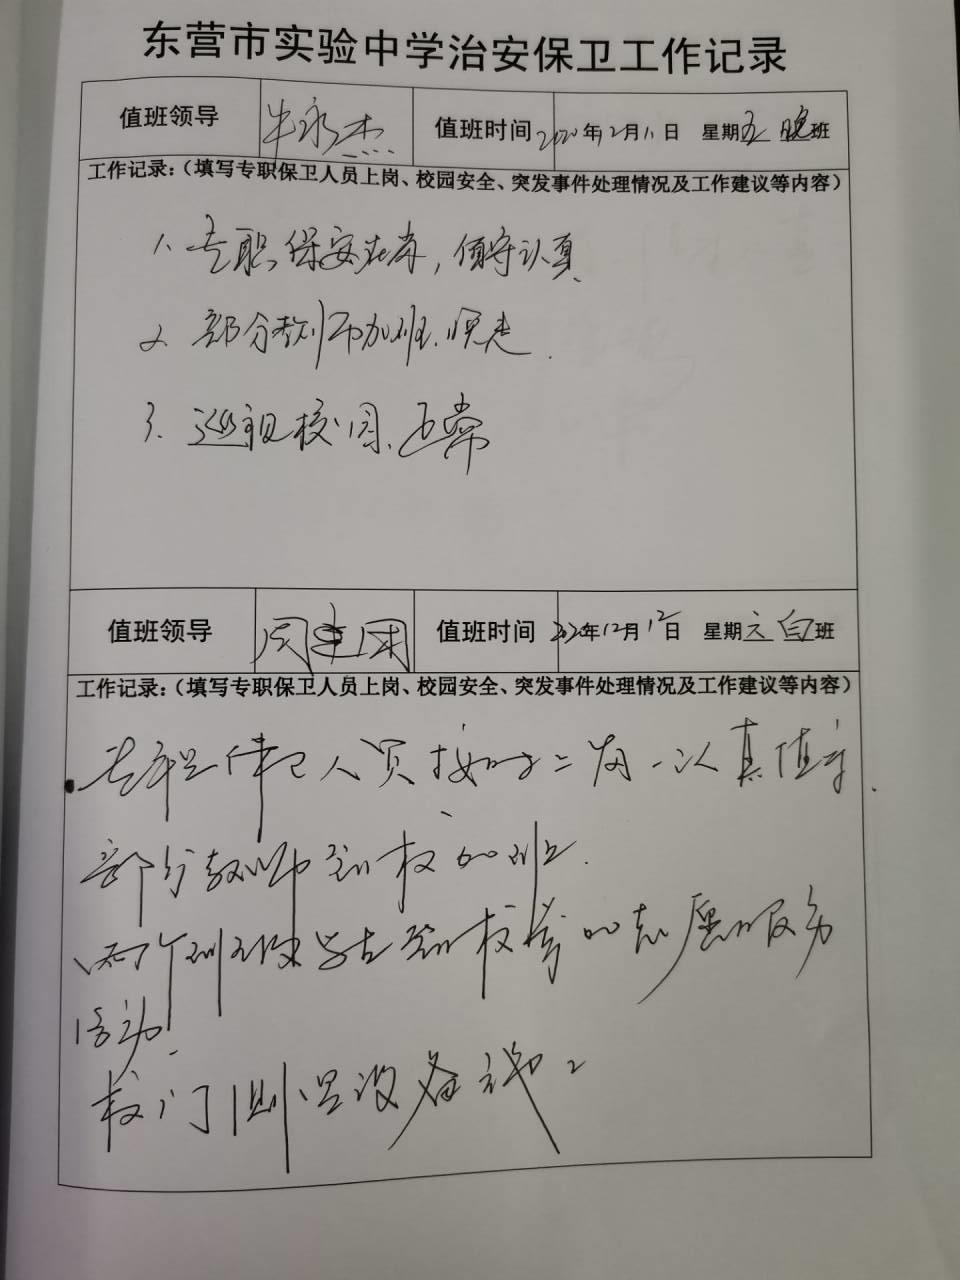 东营市实验中学治安保卫工作记录
值班领导 牛永杰 值班时间 2020年12月11日 星期五 晚班
工作记录：（填写专职保卫人员上岗、校园安全、突发事件处理情况及工作建议等内容）
1、专职保安在岗，值守认真
2、部分教师加班、晚走.
3、巡视校园、正常
值班领导 值班时间 2020年12月12日 星期六 白班
工作记录：（填写专职保卫人员上岗、校园安全、突发事件处理情况及工作建议等内容）
专职保卫人员按时上岗、认真值守.
部分教师到校加班.
两个班级学生到校参加志愿服务
活动.
校门测温设备